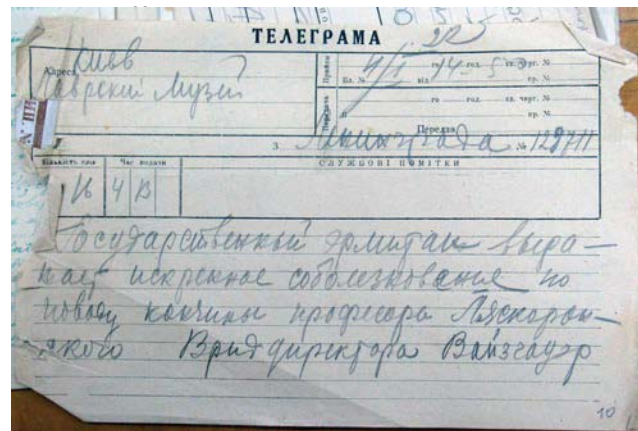 ТЕЛЕГРАМА
Адреса Киев
Лаврский Музей
го год. хв. черг. №
Бл. № 4/I від 14-53 пр. №
го год. хв. черг. №
пр. №
Передав
З Ленинграда № 12971
Кількість слів Час подачи СЛУЖБОВІ ПОМІТКИ
16 4 13
Государственный эрмитаж выра–
жает искренное соболезнование по
поводу кончины профессора Ляскорон–
ского Врид директора Вайзгауэр
10